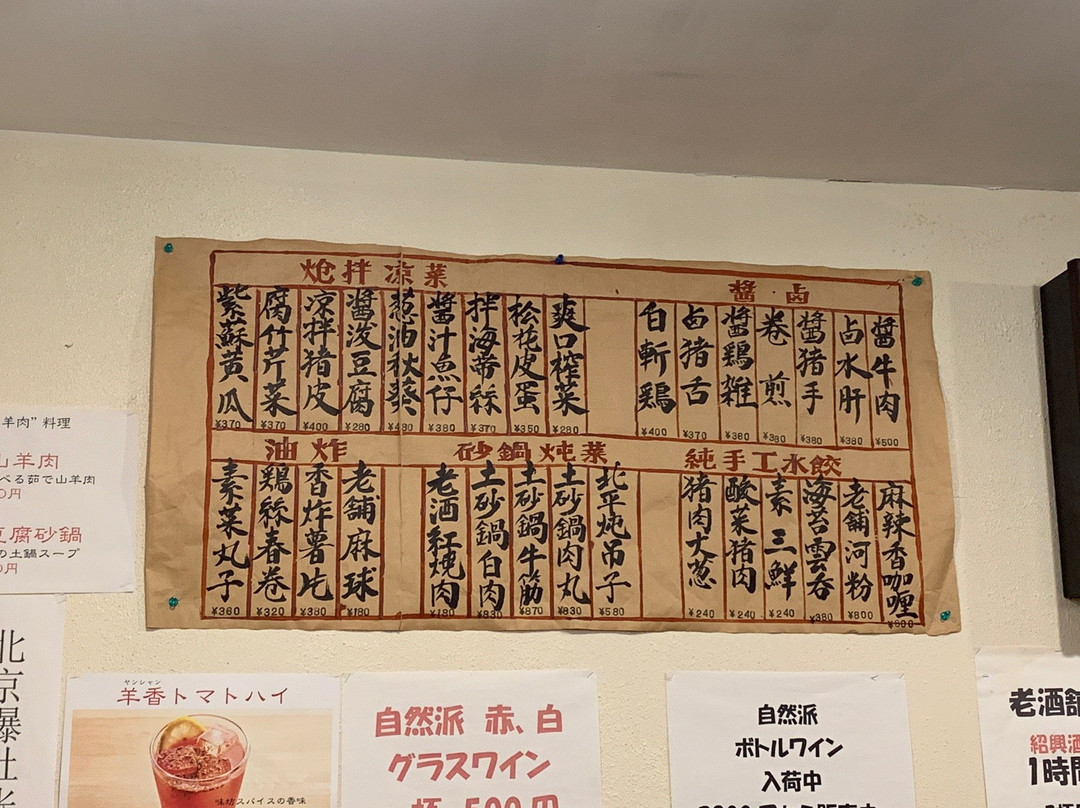 醬·卤
醬牛肉
¥500
卤水肝
¥380
醬猪手
¥380
卷煎
¥380
醬鶏雑
¥360
卤猪舌
¥370
白斬鶏
¥400
炝拌凉菜
爽口榨菜
¥280
松花皮蛋
¥350
拌海帯絲
¥370
醬汁魚仔
¥380
葱油秋葵
¥480
醬泼豆腐
¥280
凉拌猪皮
¥400
腐竹芹菜
¥370
紫蘇黄瓜
¥370
純手工水餃
麻辣香咖喱
老舗河粉
¥800
海苔雲呑
¥380
素三鮮
¥240
酸菜猪肉
¥240
猪肉大葱
¥240
砂鍋炖菜
北平炖吊子
¥580
土砂鍋肉丸
¥830
土砂鍋牛筋
¥870
土砂鍋白肉
¥830
老酒紅炖肉
油炸
老舗麻球
¥180
香炸薯片
¥380
鶏絲春卷
¥320
素菜丸子
¥360
羊肉”料理
山羊肉
べる茹で山羊肉
0円
豆腐砂鍋
の土鍋スープ
0円
北京爆肚
ヤンシャン
羊香トマトハイ
味坊スパイスの香味
自然派 赤、白
グラスワイン
杯 500円
自然派
ボトルワイン
入荷中
老酒舗
紹興酒
1時間